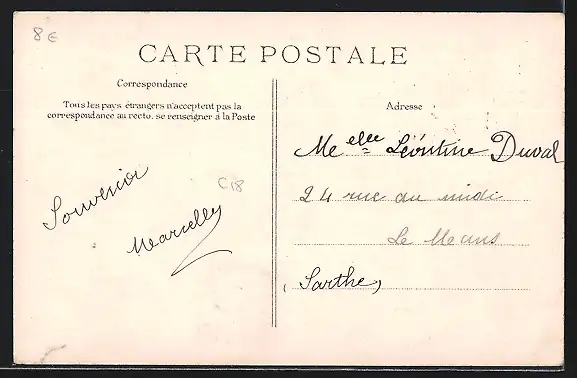 8€
CARTE POSTALE
Correspondance
Tous les pays étrangers n'acceptent pas la
correspondance au recto. se renseigner à la Poste
Souvenir
C18
Marcelly
Adresse
Me elle Léontine Duval
24 rue au midi
Le Mans
(Sarthe)